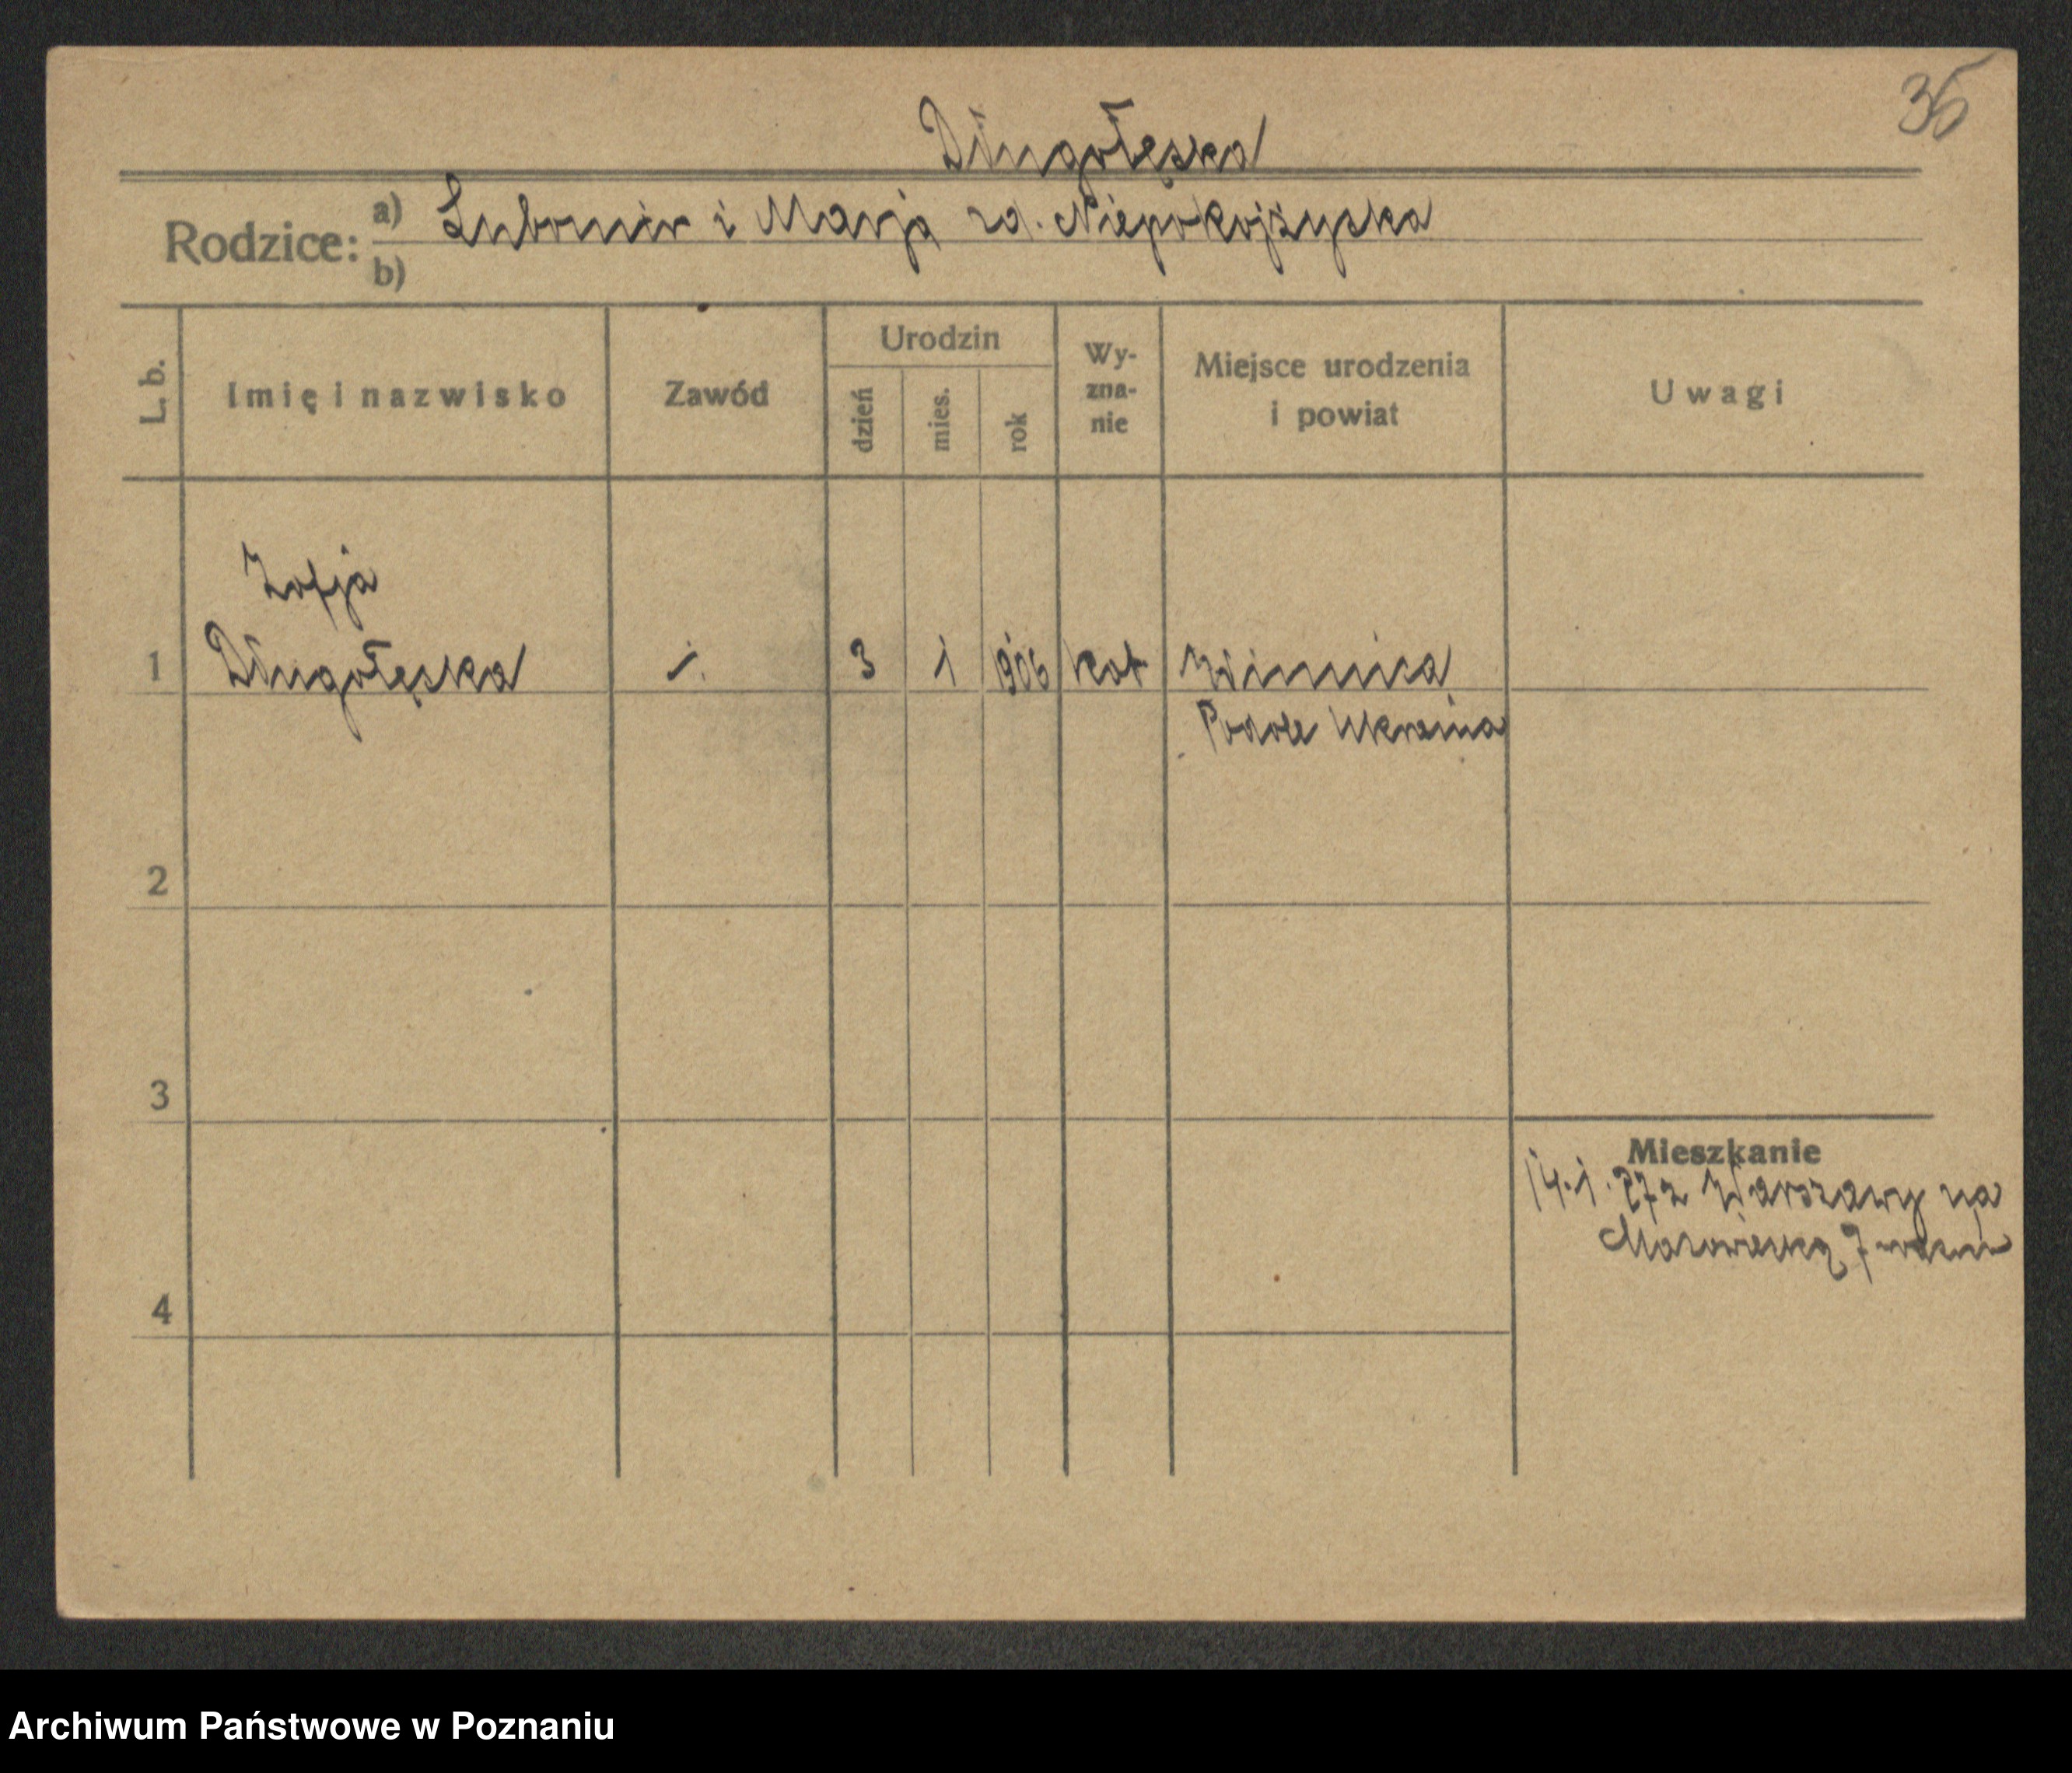 35
Długołęska
Rodzice: a) Lubomir i Marja zd. Niepokojżyska
b)
L. b.
Imię i nazwisko
Zawód
Urodzin
dzień
mies.
rok
Wy-
zna-
nie
Miejsce urodzenia
i powiat
Uwagi
Zofja
1 Długołęska 3 1 1906 kat Winnica
Podole Ukraina
2
3
Mieszkanie
14.1. 27 z Warszawy na
Mazowiecką 7
4
Archiwum Państwowe w Poznaniu